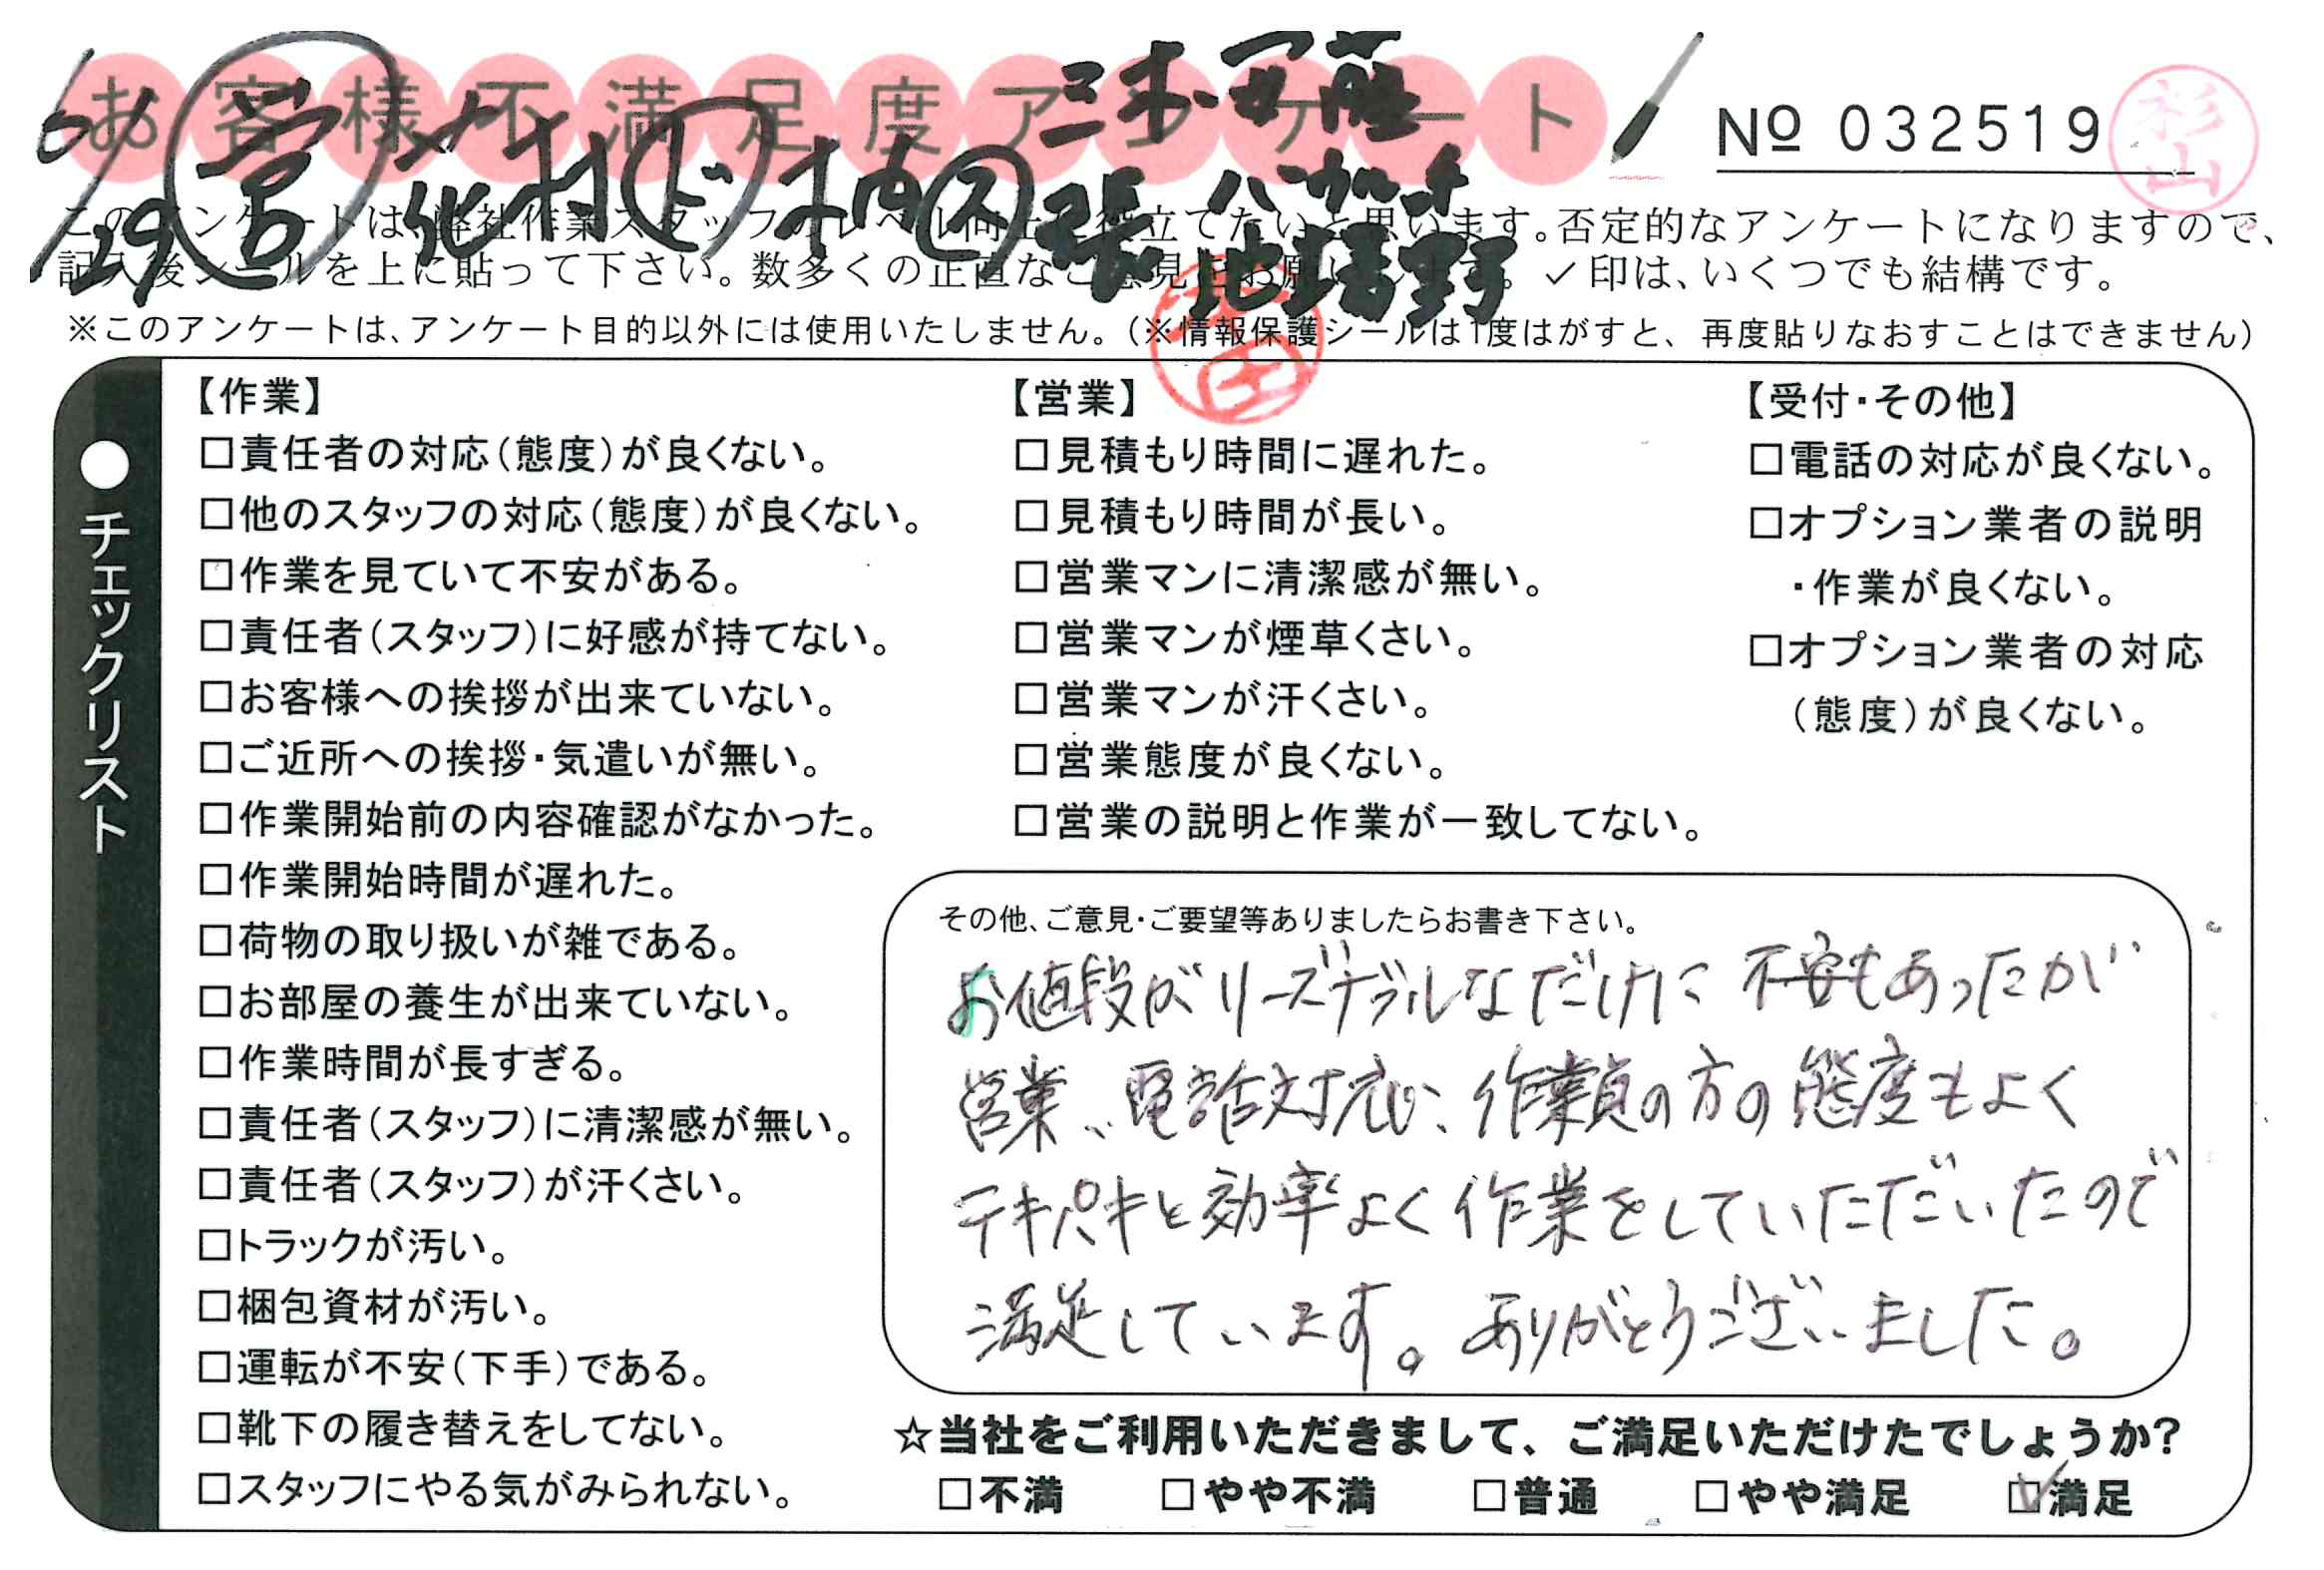 お客様不満足度アンケート
№ 032519
杉山
6/29 営 北村 ド 木内 ス 三木・安藤
張
このアンケートは、弊社作業スタッフのレベル向上に役立てたいと思います。否定的なアンケートになりますので、
記入後シールを上に貼って下さい。数多くの正直なご意見をお願いします。✓印は、いくつでも結構です。
※このアンケートは、アンケート目的以外には使用いたしません。(※情報保護シールは1度はがすと、再度貼りなおすことはできません)
●チェックリスト
【作業】
□責任者の対応(態度)が良くない。
□他のスタッフの対応(態度)が良くない。
□作業を見ていて不安がある。
□責任者(スタッフ)に好感が持てない。
□お客様への挨拶が出来ていない。
□ご近所への挨拶・気遣いが無い。
□作業開始前の内容確認がなかった。
□作業開始時間が遅れた。
□荷物の取り扱いが雑である。
□お部屋の養生が出来ていない。
□作業時間が長すぎる。
□責任者(スタッフ)に清潔感が無い。
□責任者(スタッフ)が汗くさい。
□トラックが汚い。
□梱包資材が汚い。
□運転が不安(下手)である。
□靴下の履き替えをしてない。
□スタッフにやる気がみられない。
【営業】
□見積もり時間に遅れた。
□見積もり時間が長い。
□営業マンに清潔感が無い。
□営業マンが煙草くさい。
□営業マンが汗くさい。
□営業態度が良くない。
□営業の説明と作業が一致してない。
【受付・その他】
□電話の対応が良くない。
□オプション業者の説明
・作業が良くない。
□オプション業者の対応
(態度)が良くない。
その他、ご意見・ご要望等ありましたらお書き下さい。
お値段がリーズナブルなだけに不安もあったが
営業、電話対応、作業員の方の態度もよく
テキパキと効率よく作業をしていただいたので
満足しています。ありがとうございました。
☆当社をご利用いただきまして、ご満足いただけたでしょうか?
□不満 □やや不満 □普通 □やや満足 ☑満足